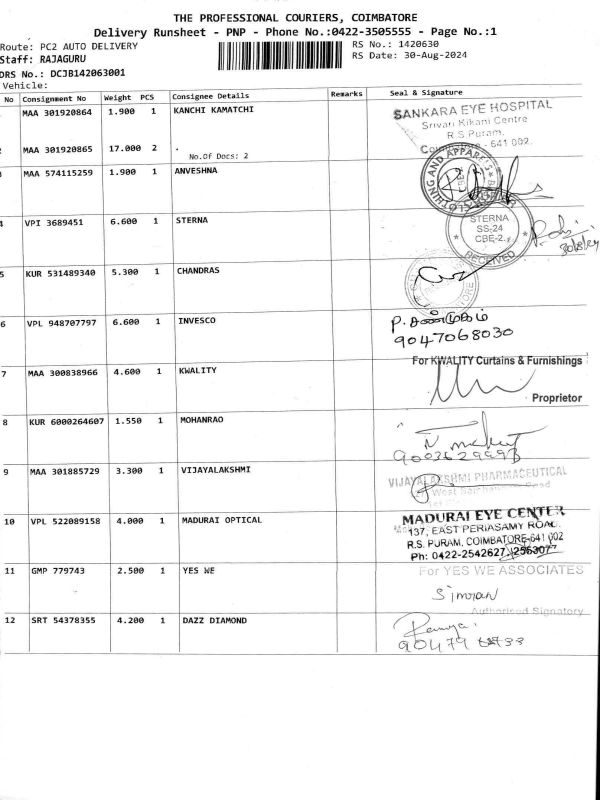 THE PROFESSIONAL COURIERS, COIMBATORE
Delivery Runsheet - PNP - Phone No.:0422-3505555 - Page No.:1
Route: PC2 AUTO DELIVERY
RS No.: 1420630
Staff: RAJAGURU
RS Date: 30-Aug-2024
DRS No.: DCJB142063001
Vehicle:
No Consignment No Weight PCS Consignee Details Remarks Seal & Signature
MAA 301920864 1.900 1 KANCHI KAMATCHI
SANKARA EYE HOSPITAL
Srivari Kikani Centre
R.S Puram,
641 002.
2 MAA 301920865 17.000 2 .
No.Of Docs: 2
3 MAA 574115259 1.900 1 ANVESHNA
AND APPARELS
4 VPI 3689451 6.600 1 STERNA
STERNA
SS-24
CBE-2.
RECEIVED
30/8/24
5 KUR 531489340 5.300 1 CHANDRAS
6 VPL 948707797 6.600 1 INVESCO
P. சண்முகம்
9047068030
For KWALITY Curtains & Furnishings
7 MAA 300838966 4.600 1 KWALITY
Proprietor
8 KUR 6000264607 1.550 1 MOHANRAO
9 MAA 301885729 3.300 1 VIJAYALAKSHMI
VIJAYALAKSHMI PHARMACEUTICAL
10 VPL 522089158 4.000 1 MADURAI OPTICAL
MADURAI EYE CENTER
137, EAST PERIASAMY ROAD,
R.S. PURAM, COIMBATORE-641 002
Ph: 0422-2542627,
11 GMP 779743 2.500 1 YES WE
For YES WE ASSOCIATES
Simran
Authorised Signatory
12 SRT 54378355 4.200 1 DAZZ DIAMOND
Ramya.